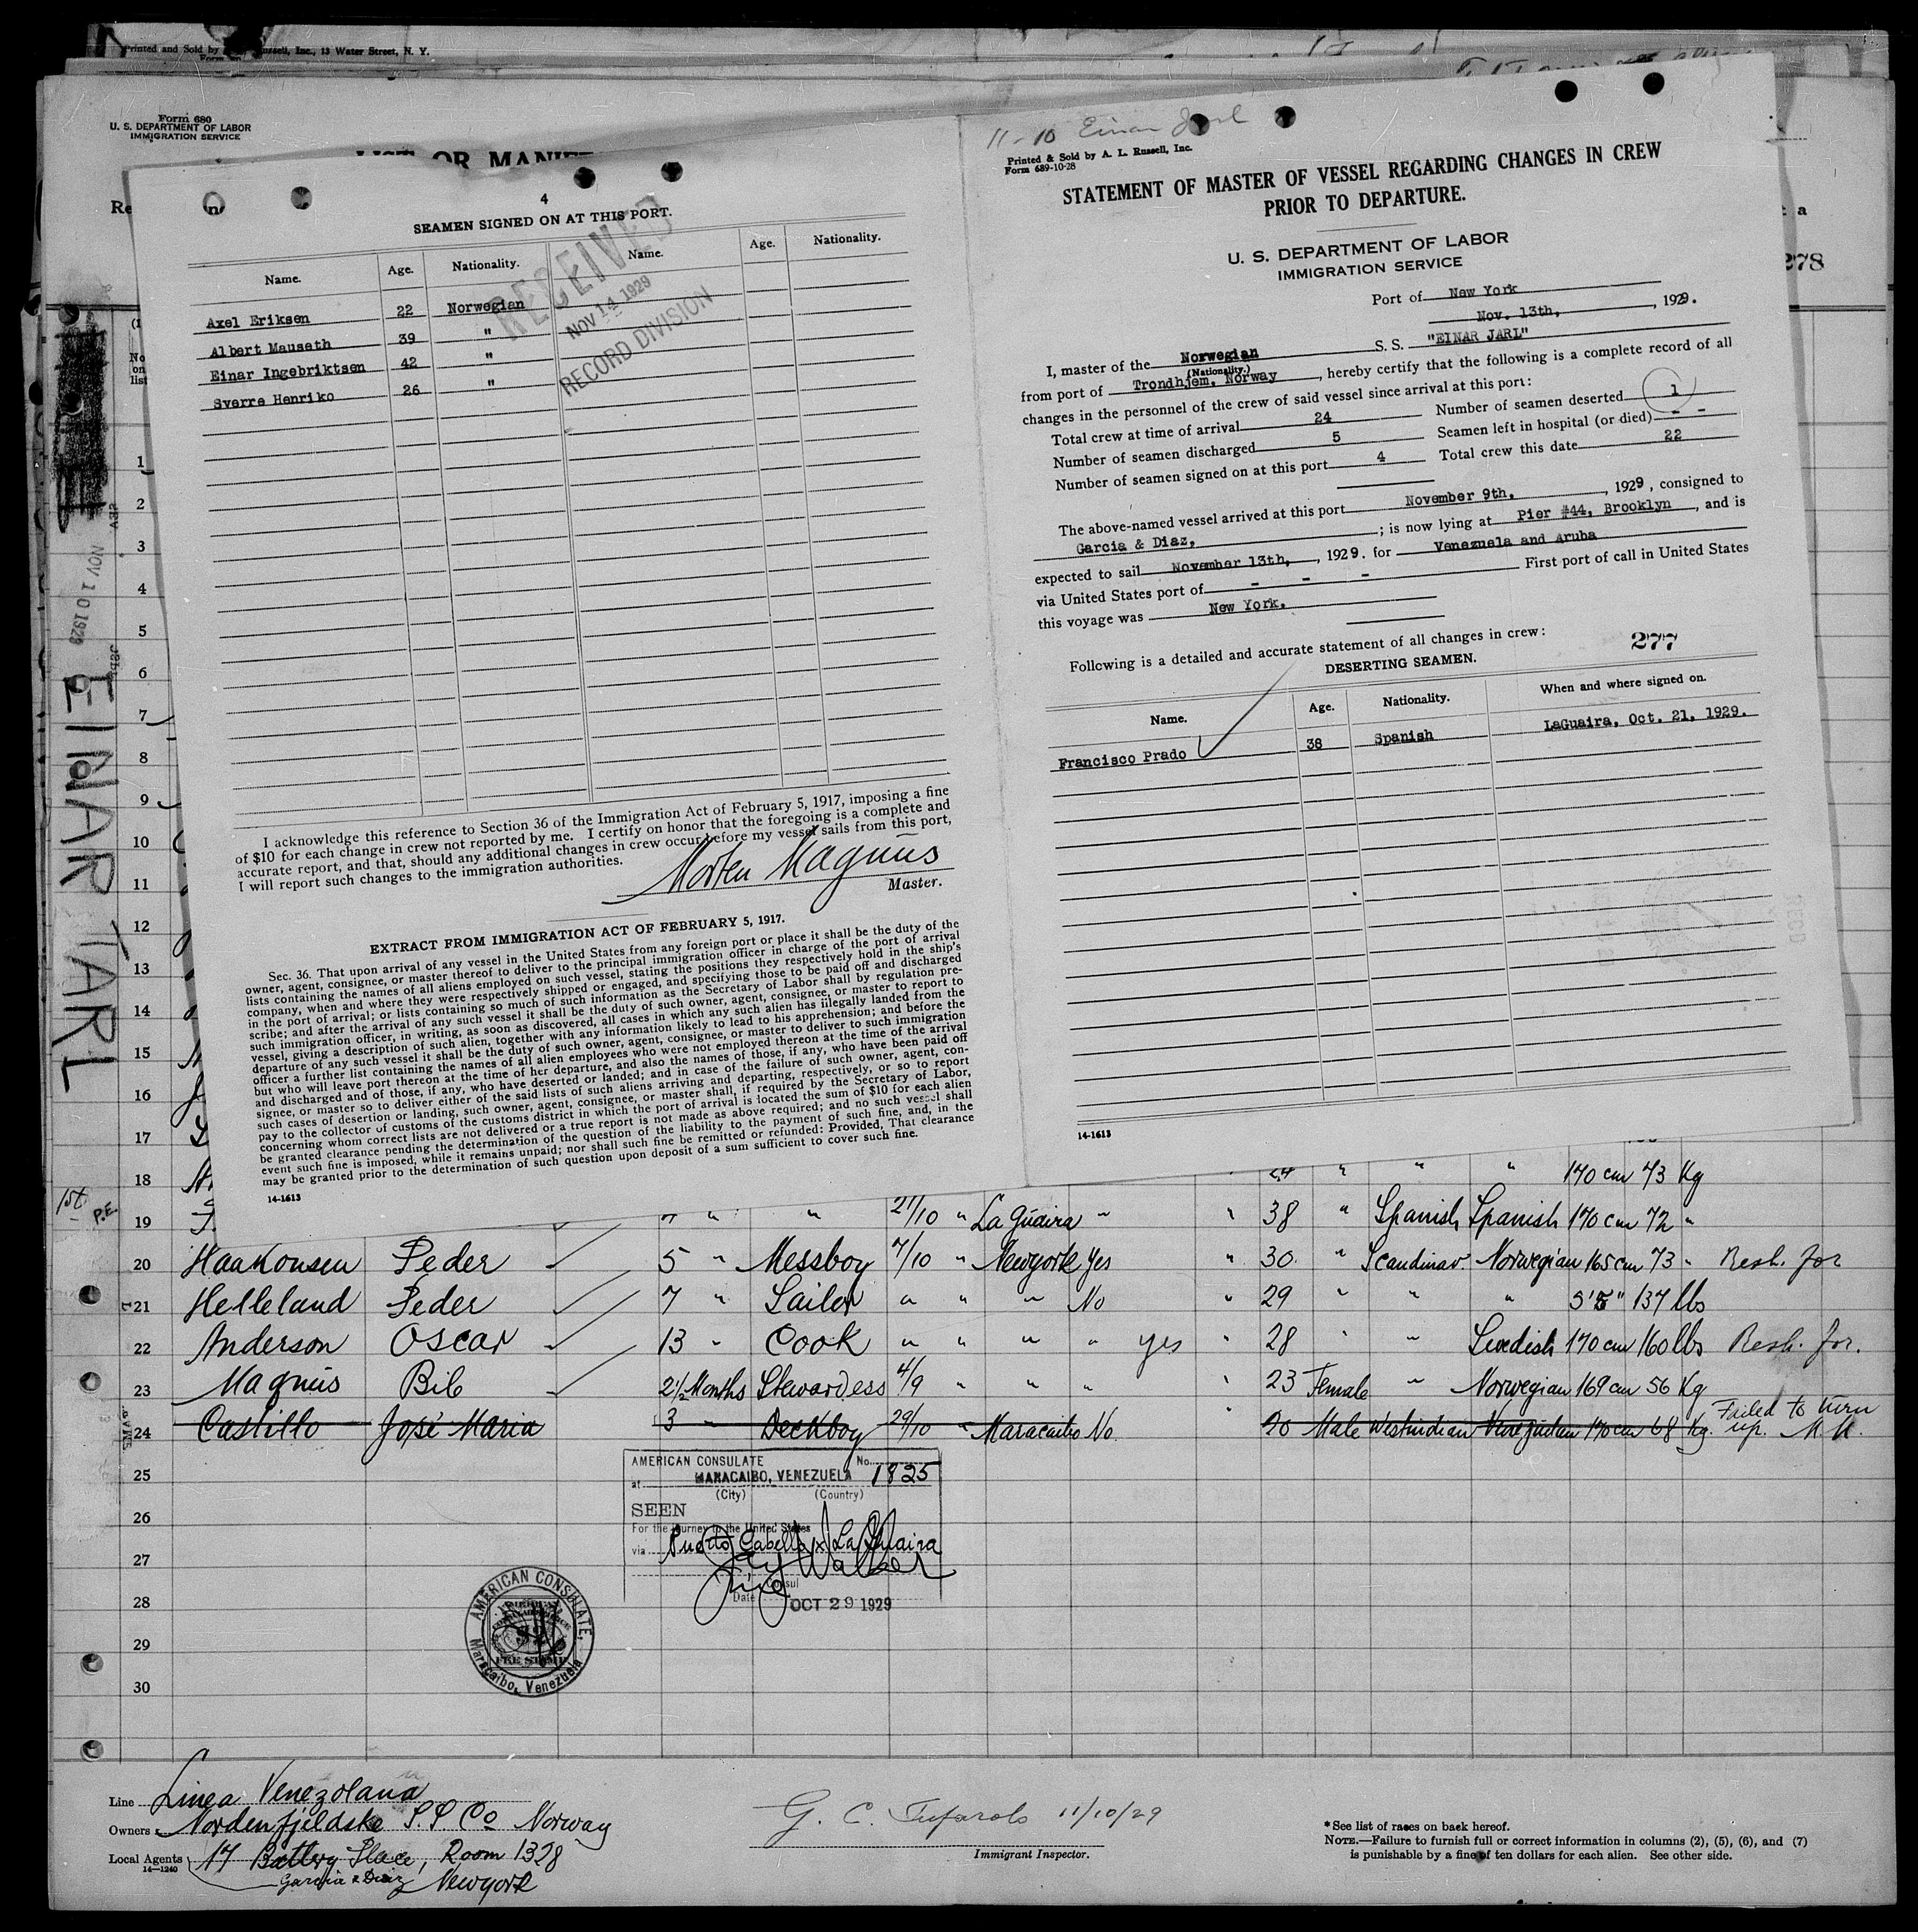 Printed and Sold by Russell, Inc., 13 Water Street, N. Y.
Form 680
U. S. DEPARTMENT OF LABOR
IMMIGRATION SERVICE
LIST OR
278
No
on
list
NOV 10 1929
EINAR JARL
4
SEAMEN SIGNED ON AT THIS PORT.
Name. Age. Nationality. Name. Age. Nationality.
Axel Eriksen 22 Norwegian
Albert Mauseth 39 "
Einar Ingebriktsen 42 "
Sverre Henriko 26 "
RECEIVED
NOV 14 1929
RECORD DIVISION
I acknowledge this reference to Section 36 of the Immigration Act of February 5, 1917, imposing a fine
of $10 for each change in crew not reported by me. I certify on honor that the foregoing is a complete and
accurate report, and that, should any additional changes in crew occur before my vessel sails from this port,
I will report such changes to the immigration authorities.
Morten Magnus
Master.
EXTRACT FROM IMMIGRATION ACT OF FEBRUARY 5, 1917.
Sec. 36. That upon arrival of any vessel in the United States from any foreign port or place it shall be the duty of the
owner, agent, consignee, or master thereof to deliver to the principal immigration officer in charge of the port of arrival
lists containing the names of all aliens employed on such vessel, stating the positions they respectively hold in the ship's
company, when and where they were respectively shipped or engaged, and specifying those to be paid off and discharged
in the port of arrival; or lists containing so much of such information as the Secretary of Labor shall by regulation pre-
scribe; and after the arrival of any such vessel it shall be the duty of such owner, agent, consignee, or master to report to
such immigration officer, in writing, as soon as discovered, all cases in which any such alien has illegally landed from the
vessel, giving a description of such alien, together with any information likely to lead to his apprehension; and before the
departure of any such vessel it shall be the duty of such owner, agent, consignee, or master to deliver to such immigration
officer a further list containing the names of all alien employees who were not employed thereon at the time of the arrival
but who will leave port thereon at the time of her departure, and also the names of those, if any, who have been paid off
and discharged and of those, if any, who have deserted or landed; and in case of the failure of such owner, agent, con-
signee, or master so to deliver either of the said lists of such aliens arriving and departing, respectively, or so to report
such cases of desertion or landing, such owner, agent, consignee, or master shall, if required by the Secretary of Labor,
pay to the collector of customs of the customs district in which the port of arrival is located the sum of $10 for each alien
concerning whom correct lists are not delivered or a true report is not made as above required; and no such vessel shall
be granted clearance pending the determination of the question of the liability to the payment of such fine, and, in the
event such fine is imposed, while it remains unpaid; nor shall such fine be remitted or refunded: Provided, That clearance
may be granted prior to the determination of such question upon deposit of a sum sufficient to cover such fine.
14-1613
11-10 Einar Jarl
Printed & Sold by A. L. Russell, Inc.
Form 689-10-28
STATEMENT OF MASTER OF VESSEL REGARDING CHANGES IN CREW
PRIOR TO DEPARTURE.
U. S. DEPARTMENT OF LABOR
IMMIGRATION SERVICE
Port of New York
Nov. 13th, , 1929.
I, master of the Norwegian S. S. "EINAR JARL"
(Nationality.)
from port of Trondhjem, Norway , hereby certify that the following is a complete record of all
changes in the personnel of the crew of said vessel since arrival at this port:
Total crew at time of arrival 24 Number of seamen deserted 1
Number of seamen discharged 5 Seamen left in hospital (or died) - -
Number of seamen signed on at this port 4 Total crew this date 22
The above-named vessel arrived at this port November 9th, , 1929, consigned to
Garcia & Diaz, ; is now lying at Pier #44, Brooklyn , and is
expected to sail November 13th, , 1929. for Venezuela and Aruba
via United States port of - - - First port of call in United States
this voyage was New York.
Following is a detailed and accurate statement of all changes in crew:
277
DESERTING SEAMEN.
Name. Age. Nationality. When and where signed on.
Francisco Prado 38 Spanish LaGuaira, Oct. 21, 1929.
14-1613
1
2
3
4
5
6
7
8
9
10
11
12
13
14
15
16
17
18 24 " " " 170 cm 73 Kg
1st P.E.
19 " " 21/10 " La Guaira " " 38 " Spanish Spanish 170 cm 72 "
20 Haakonsen Peder 5 " Messboy 7/10 " Newyork Yes " 30 " Scandinav. Norwegian 165 cm 73 " Resh. for
21 Helleland Peder 7 " Sailor " " " No " 29 " " " 5'5" 137 lbs
22 Anderson Oscar 13 " Cook " " " " yes " 28 " " Swedish 170 cm 160 lbs Resh. for.
23 Magnus Bib 2 1/2 Months Stewardess 4/9 " " " " 23 Female " Norwegian 169 cm 56 Kg
24 Castillo José Maria 3 " Deckboy 29/10 " Maracaibo No. " 20 Male Westindian Venezuelan 170 cm 68 Kg. Failed to turn up. M.M.
25
26
27
28
29
30
AMERICAN CONSULATE No. 1825
at MARACAIBO, VENEZUELA
(City) (Country)
SEEN
For the journey to the United States
via Puerto Cabello x La Guaira
Consul
Date OCT 29 1929
AMERICAN CONSULATE,
Maracaibo, Venezuela
FEE STAMP
Line Linea Venezolana
Owners Nordenfjeldske S.S Co Norway
Local Agents 17 Battery Place, Room 1328
14-1240
Garcia & Diaz Newyork
G. C. Tufarolo 11/10/29
Immigrant Inspector.
* See list of races on back hereof.
NOTE.—Failure to furnish full or correct information in columns (2), (5), (6), and (7)
is punishable by a fine of ten dollars for each alien. See other side.